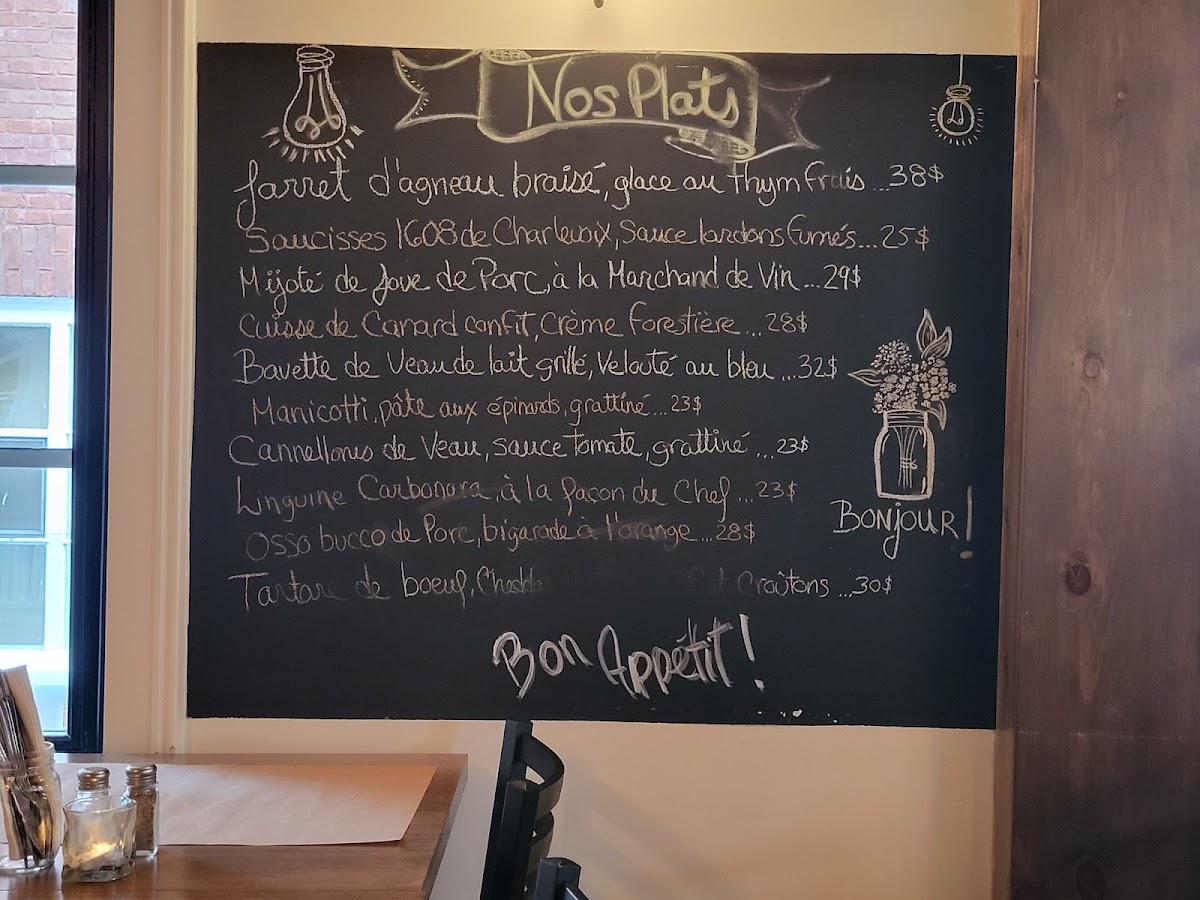 Nos Plats
Jarret d'agneau braisé, glace au thym frais...38$
Saucisses 1608 de Charlevoix, Sauce lardons fumés...25$
Mijoté de Joue de Porc, à la Marchand de Vin...29$
Cuisse de Canard confit, Crème forestière...28$
Bavette de Veau de lait grillé, Velouté au bleu...32$
Manicotti, pâte aux épinards, grattiné...23$
Cannellonis de Veau, sauce tomate, grattiné...23$
Linguine Carbonara, à la façon du Chef...23$
Osso bucco de Porc, bigarade à l'orange...28$
Tartare de boeuf, Croûtons...30$
Bonjour!
Bon Appétit!